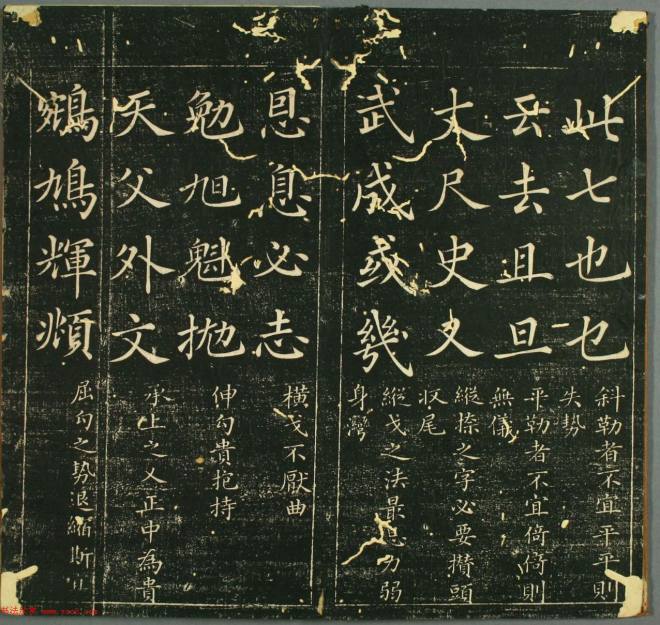 此七也乜
斜勒者不宜平平則
失勢
云去且旦
平勒者不宜倚倚則
無儀
丈尺史又
縱捺之字必要攢頭
収尾
武成或幾
縱戈之法最忌力弱
身灣
恩息必志
橫戈不厭曲
勉旭魁抛
伸勾貴抱持
天父外文
承上之乂正中為貴
鵷鳩輝頫
屈勾之勢退縮斯